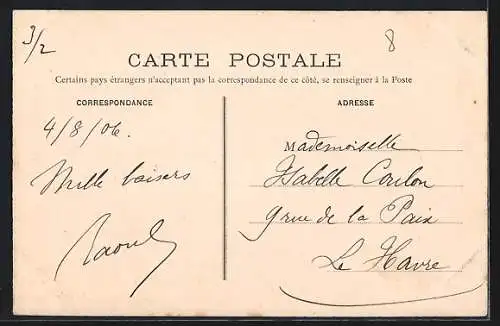 3/2
8
CARTE POSTALE
Certains pays étrangers n'acceptant pas la correspondance de ce côté, se renseigner à la Poste
CORRESPONDANCE
ADRESSE
4/8/06.
Mille baisers
Raoul
Mademoiselle
Isabelle Coulon
9 rue de la Paix
Le Havre